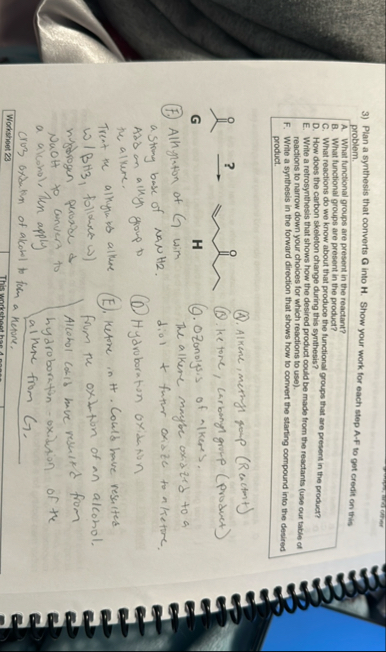 3) Plan a synthesis that converts G into H. Show your work for each step A-F to get credit on this
problem.
A. What functional groups are present in the reactant?
B. What functional groups are present in the product?
C. What reactions do we know about that produce the functional groups that are present in the product?
D. How does the carbon skeleton change during this synthesis?
E. Write a retrosynthesis that shows how the desired product could be made from the reactants (use our table of
reactions to narrow down your choices for which reactions to use).
F. Write a synthesis in the forward direction that shows how to convert the starting compound into the desired
product.
O
?
O
G
H
(A) Alkene, methyl group (Reactant)
(B) ketone, carbonyl group (product)
(C) Ozonolysis of alkenes.
The alkene maybe oxidized to a
diol + further oxidize to a ketone.
(D) Hydroboration oxidation
(E). Ketone in H. Could have resulted
from the oxidation of an alcohol.
Alcohol could have resulted from
hydroboration oxidation of the
alkene from G.
(F) Alkylation of G with
a strong base of NaNH2.
Add an alkyl group to
the alkene.
Treat the alkylated alkene
w/ BH3, followed w/
hydrogen peroxide &
NaOH to convert to
a alcohol, then apply
oxidation of alcohol to form a ketone.
Worksheet 23
This worksheet has 4 pages